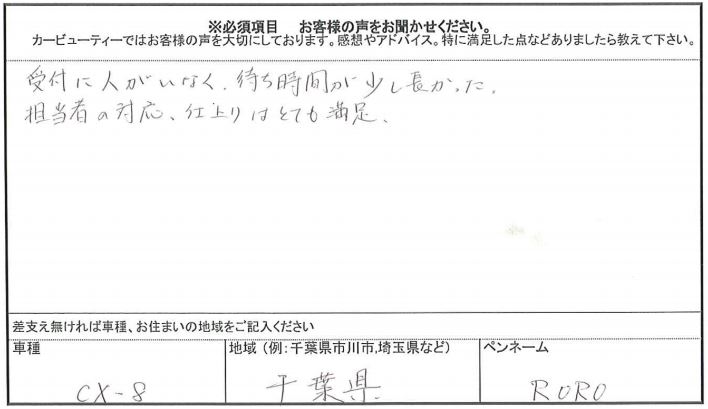 ※必須項目　お客様の声をお聞かせください。
カービューティーではお客様の声を大切にしております。感想やアドバイス。特に満足した点などありましたら教えて下さい。
受付に人がいなく、待ち時間が少し長かった。
担当者の対応、仕上りはとても満足、
差支え無ければ車種、お住まいの地域をご記入ください
車種
CX-8
地域（例：千葉県市川市,埼玉県など）
千葉県
ペンネーム
RORO